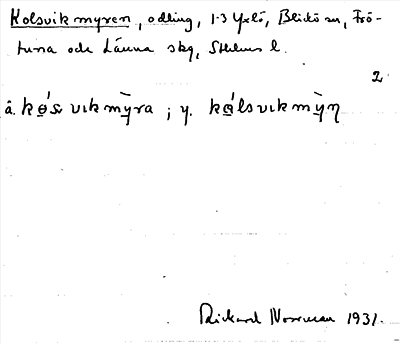 Kolsvikmyren, odling, 1-3 Yxlö, Blidö sn, Frö-
tuna och Länna skg, Sthlms l.
2
å. kọ́svıkmỳra ; y. kọ́lsvıkmỳn
Rickard Norrman 1931.